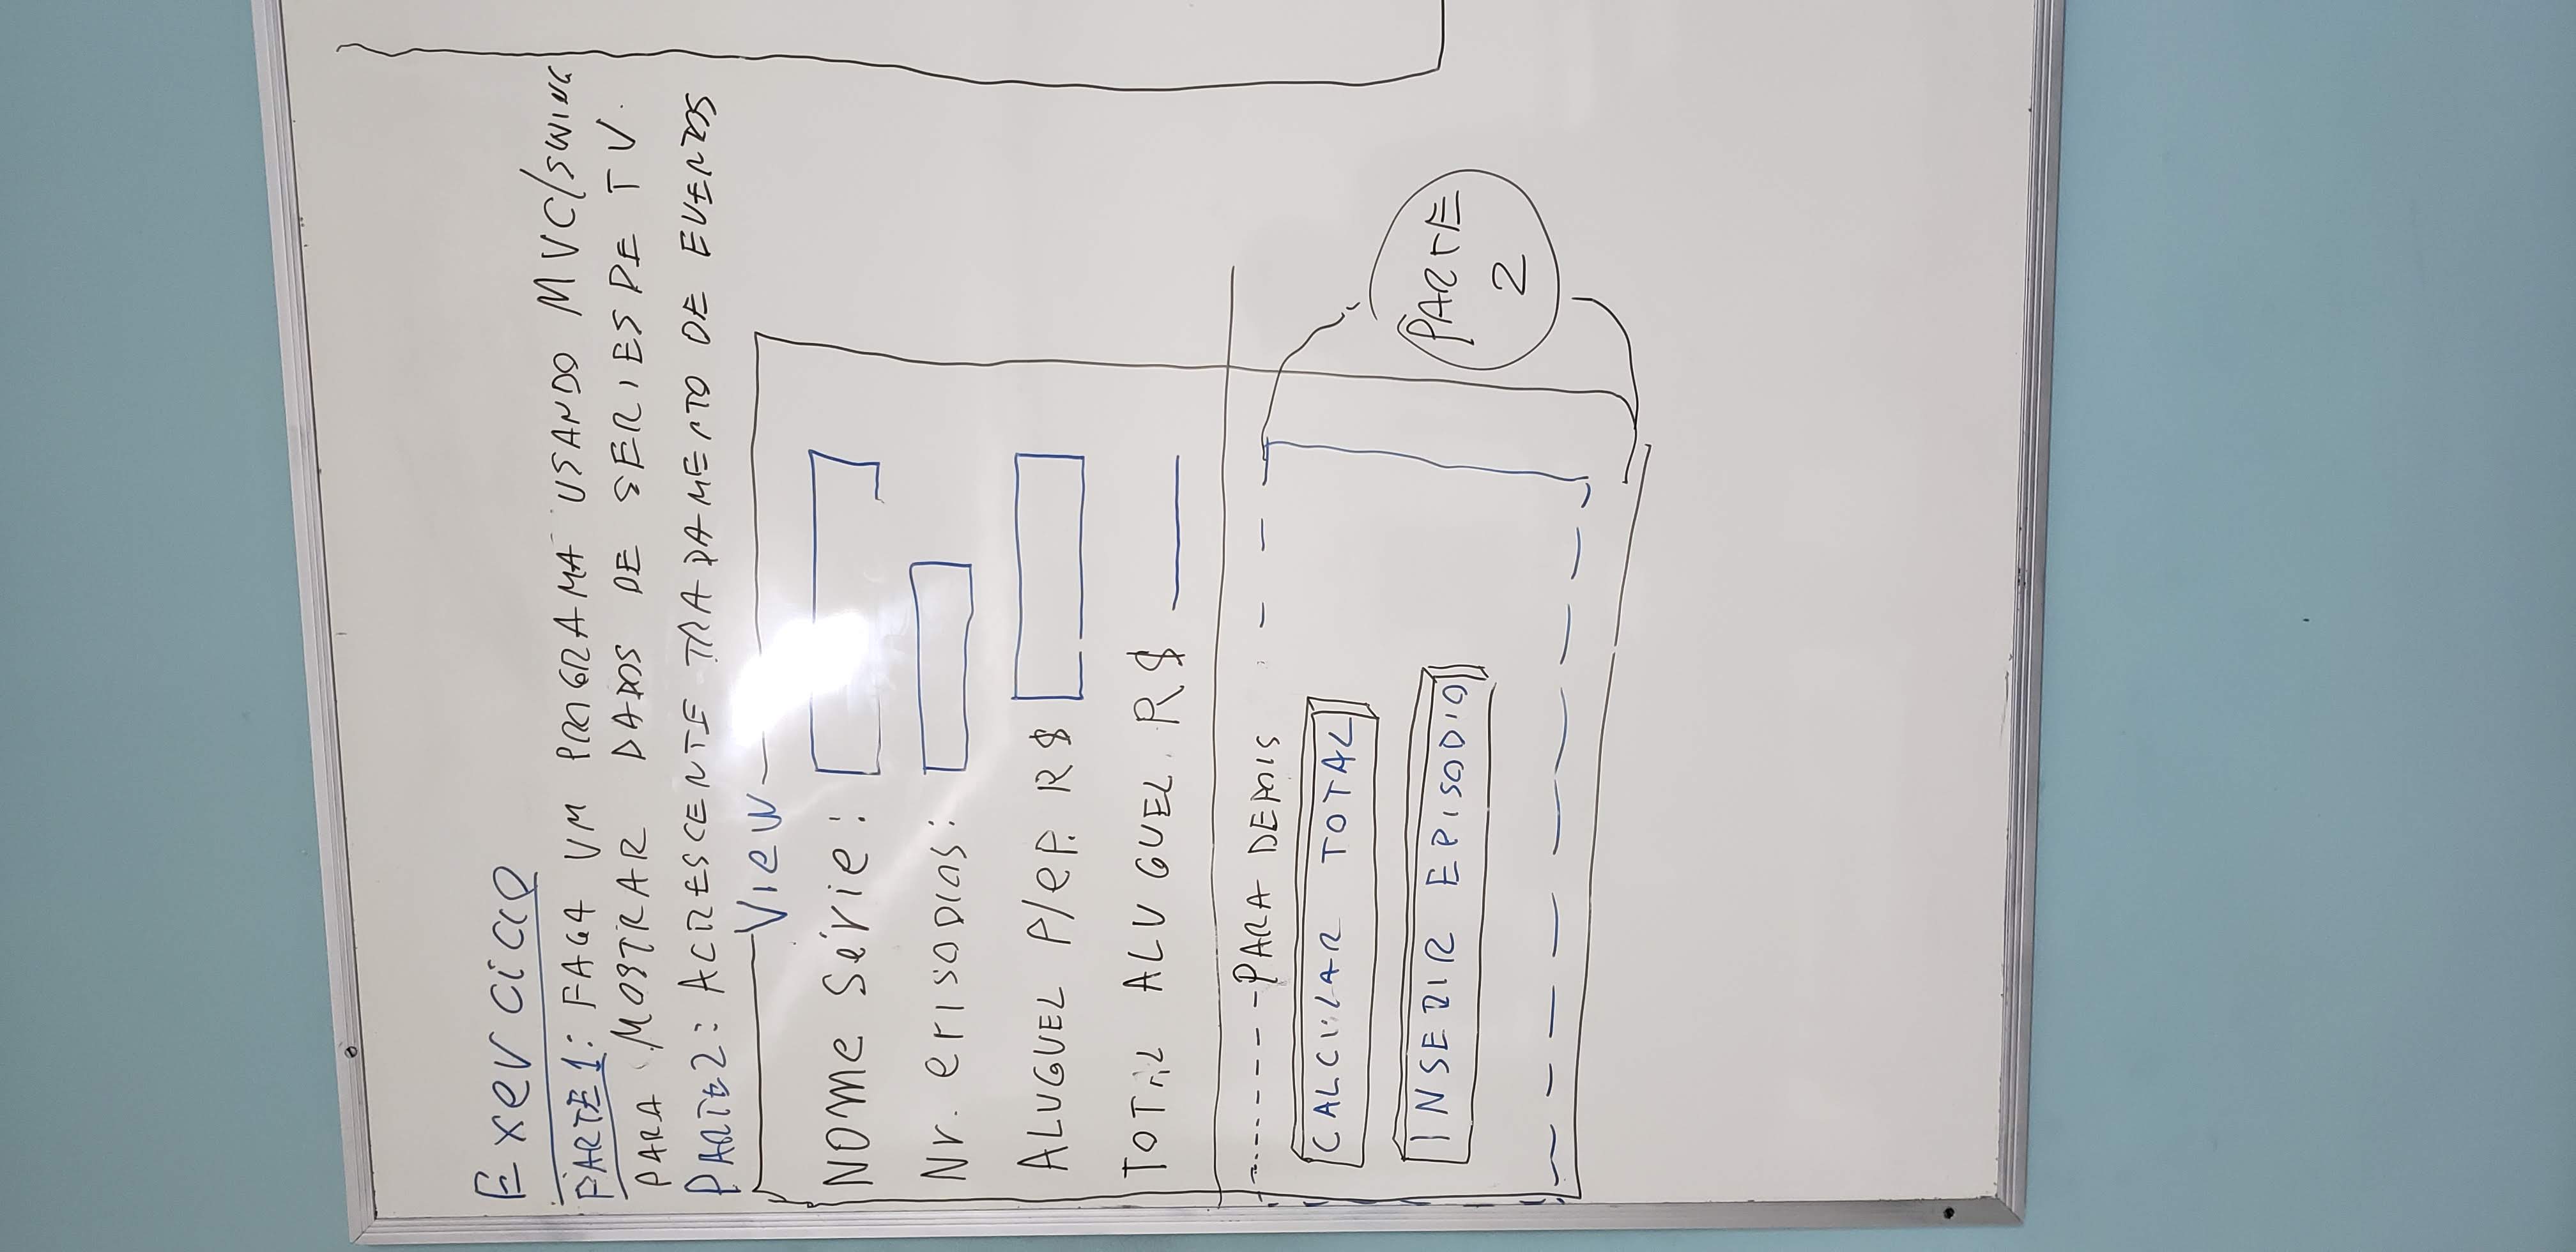 Exercício
PARTE 1: FAÇA UM PROGRAMA USANDO MVC/SWING
PARA MOSTRAR DADOS DE SERIES DE TV.
PARTE 2: ACRESCENTE TRATAMENTO DE EVENTOS
View
Nome Série:
Nr. episodios:
ALUGUEL P/ep. R$
TOTAL ALUGUEL. R$
PARA DEPOIS
CALCULAR TOTAL
INSERIR EPISODIO
PARTE
2